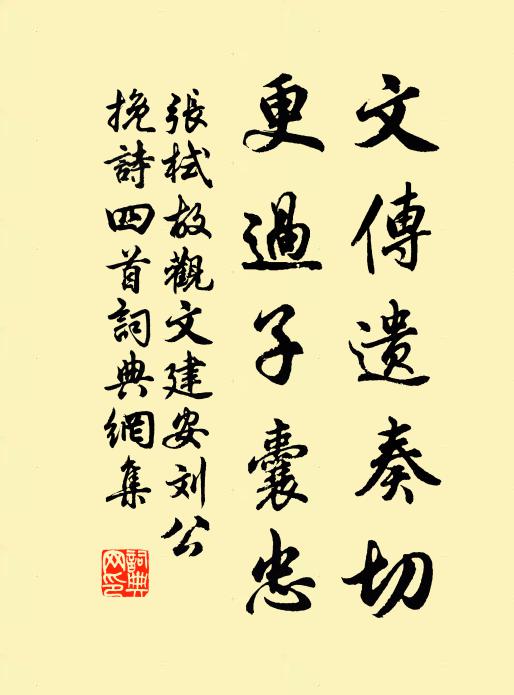 文傳遺奏切
更過子囊忠
張栻故觀文建安刘公
挽詩四首詞典網集
詞典网印